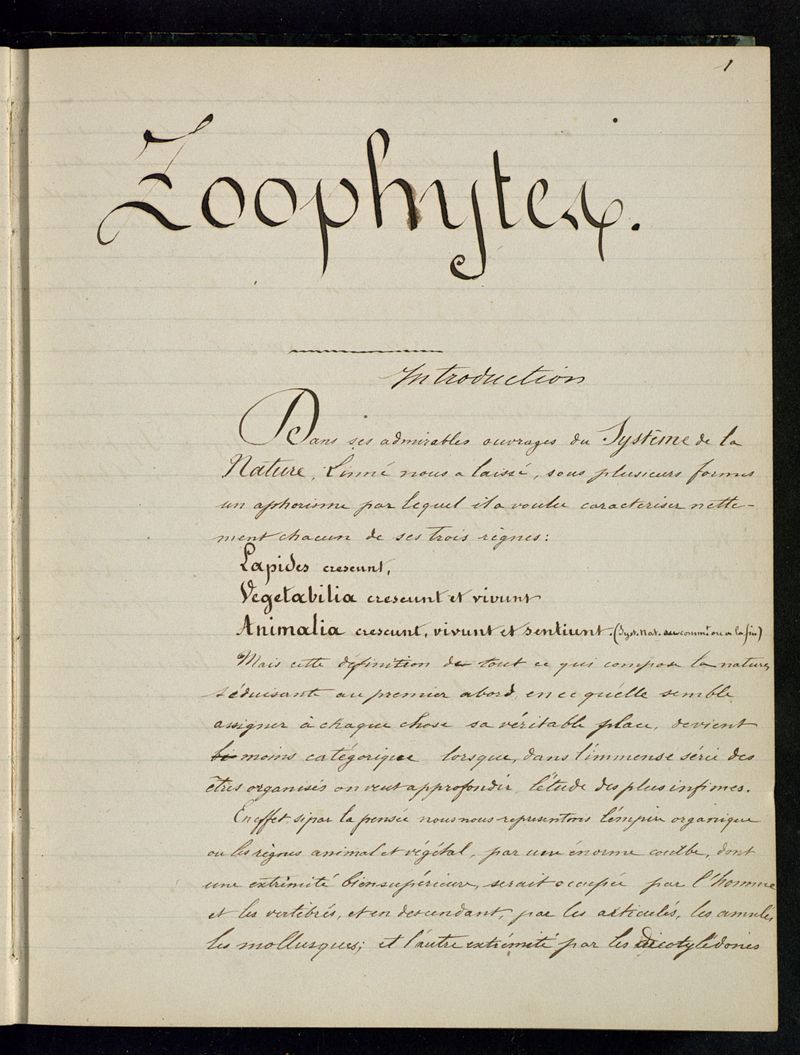 1
Zoophytes.
Introduction
Dans ses admirables ouvrages du Système de la
Nature, Linné nous a laissé, sous plusieurs formes
un aphorisme par lequel il a voulu caracteriser nette-
ment chacun de ses trois règnes:
Lapides crescunt,
Vegetabilia crescunt et vivunt
Animalia crescunt, vivunt et sentiunt. (Syst. Nat. au commt ou a la fin)
Mais cette définition de tout ce qui compose la nature,
séduisante au premier abord, en ce qu'elle semble
assigner à chaque chose sa véritable place, devient
moins catégorique lorsque, dans l'immense série des
êtres organisés on veut approfondir, l'étude des plus infimes.
En effet si par la pensée nous nous representons l'empire organique
ou les règnes animal et végétal, par une énorme courbe, dont
une extrémité bien supérieure, serait occupée par l'homme
et les vertébrés, et en descendant, par les articulés, les annulés
les mollusques; et l'autre extrémité par les dicotylédones